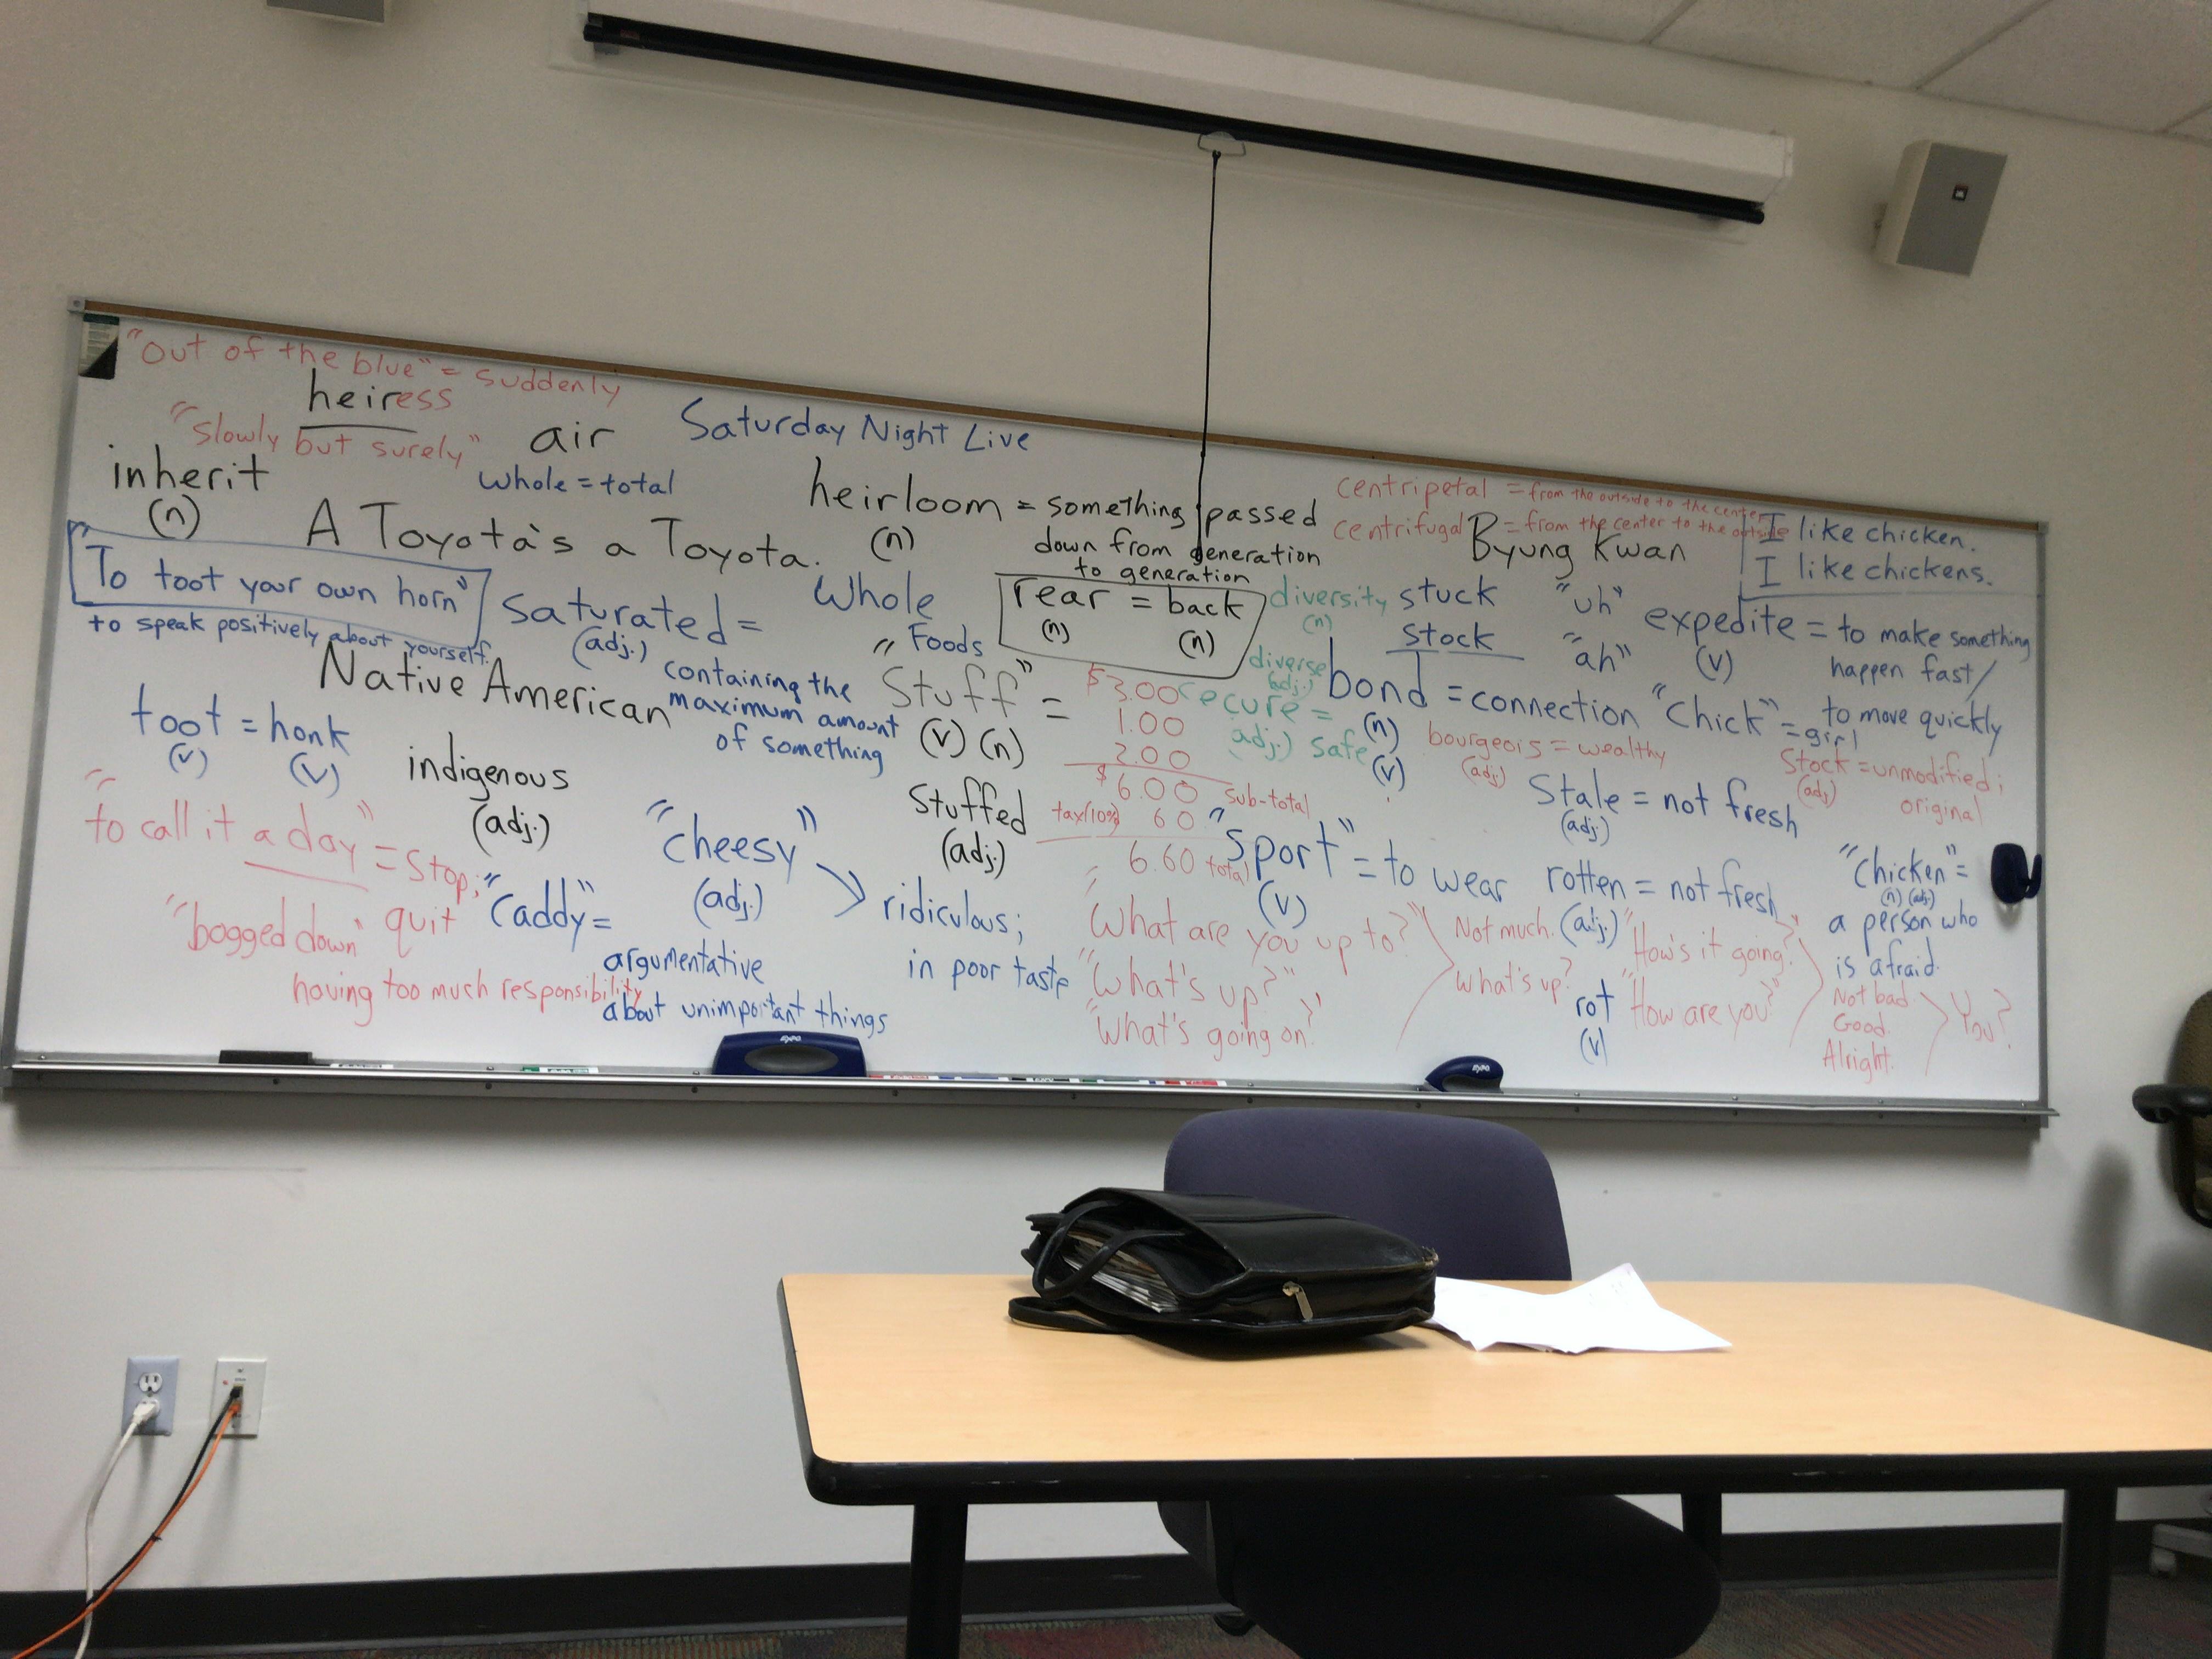 "Out of the blue" = suddenly
heiress
"Slowly but surely"
air
Saturday Night Live
inherit
(n)
whole = total
A Toyota's a Toyota.
heirloom = something passed
(n)
down from generation
to generation
centripetal = from the outside to the center
centrifugal = from the center to the outside
Byung Kwan
I like chicken.
I like chickens.
"To toot your own horn"
to speak positively about yourself.
saturated =
(adj.)
containing the
maximum amount
of something
Whole
Foods
rear = back
(n) (n)
diversity
(n)
diverse
(adj.)
stuck
stock
"uh"
"ah"
expedite = to make something
(v)
happen fast/
to move quickly
Native American
"Stuff" =
(v) (n)
$3.00
1.00
2.00
$6.00 sub-total
tax(10%) 60
6.60 total
secure =
adj.) safe
bond = connection
(n)
(v)
"Chick" = girl
toot = honk
(v) (v)
indigenous
(adj.)
bourgeois = wealthy
(adj.)
Stock = unmodified;
(adj)
original
Stale = not fresh
(adj.)
stuffed
(adj.)
"to call it a day" = stop;
quit
"cheesy"
(adj.)
ridiculous;
in poor taste
"Sport" = to wear
(v)
rotten = not fresh
(adj.)
rot
(v)
"Chicken" =
(n) (adj.)
a person who
is afraid.
"bogged down"
having too much responsibility
"Caddy" =
argumentative
about unimportant things
"What are you up to?"
"What's up?"
"What's going on?"
Not much.
What's up?
"How's it going?"
"How are you?"
Not bad.
Good.
Alright.
You?
EXPO
EXPO